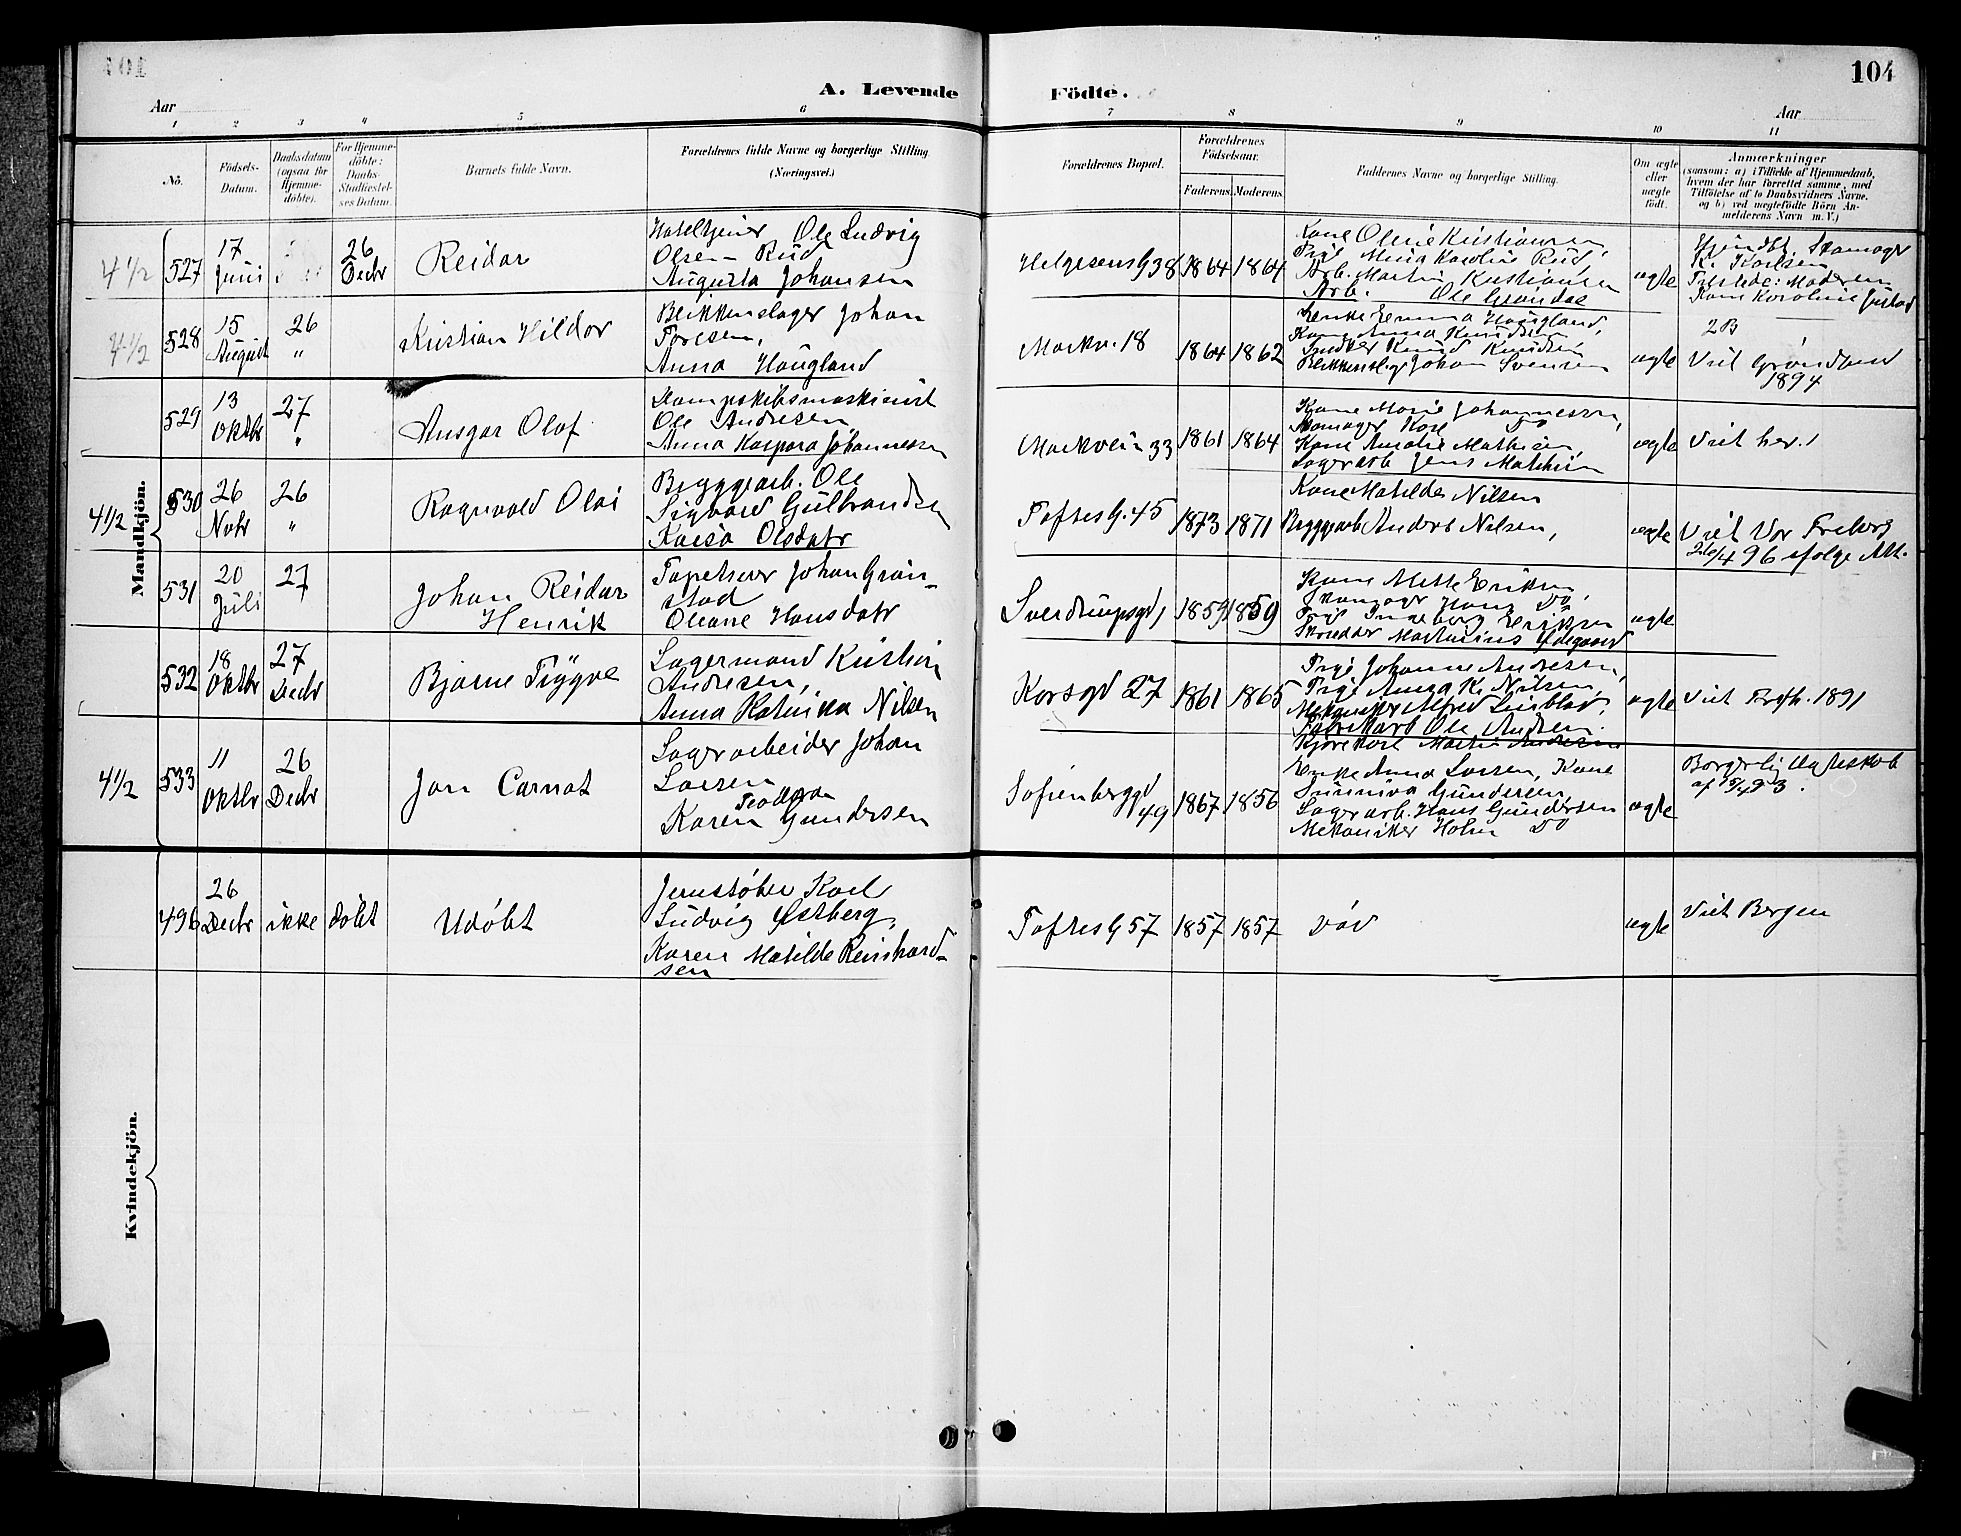 A. Levende Födte.
104
Aar
Aar
1 2 3 4 5 6 7 8 9 10 11
No.
Födsels-Datum.
Daabsdatum (ogsaa for Hjemme-döbte).
For Hjemme-döbte: Daabs-Stadfæstel-ses Datum.
Barnets fulde Navn.
Forældrenes fulde Navne og borgerlige Stilling.
(Næringsvei.)
Forældrenes Bopæl.
Forældrenes Födselsaar.
Faderens. Moderens.
Faddernes Navne og borgerlige Stilling.
Om ægte eller uægte födt.
Anmærkninger
(saasom: a) i Tilfælde af Hjemmedaab,
hvem der har forrettet samme, med
Tilföielse af to Daabsvidners Navne.
og b) ved uægtefödte Börn An-
melderens Navn m. V.)
Mandkjön.
4 1/2 527 17 Juni 26 Decbr Reidar
Hoteltjener Ole Ludvig
Olsen Rud
Augusta Johansen
Helgesens G 38 1864 1864
Kone Oline Kristiansen,
Pige Mina Karoline Rud,
Arb. Martin Kristiansen
Arb. Ole Grøndal
ægte
Hjemdbt. Skomagr
K. Karlsen
Tilstede: Moderen
Kone Karoline
4 1/2 528 15 August 26 " Kristian Hildor
Blikkenslager Johan
Toresen,
Anna Haugland
Markv. 18 1864 1862
Enke Emma Haugland,
Kone Anna Knudsen
Snedker Knud Knudsen
Blikkenslgr Johan Svensen
ægte
2B
Viet Grønland
1894
529 13 Oktbr 27 " Ansgar Olaf
Dampskibsmaskinist
Ole Andresen
Anna Kaspara Johannessen
Markvein 33 1861 1864
Kone Marie Johannessen,
Skomager Karl Do
Kone Amalie Mathisen,
Lagerarb Jens Mathisen
ægte Viet her.
4 1/2 530 26 Novbr 26 " Ragnvald Olai
Bryggearb. Ole
Sigvard Gulbrandsen
Kaisa Olsdatr
Toftes G. 45 1873 1871
Kone Matilde Nilsen
Bryggearb Anders Nilsen,
ægte
Viet Vor Frelsers
26/4 96 ifølge Att.
531 20 Juli 27 Johan Reidar
Henrik
Tapetserer Johan Gran-
stad
Oleane Hansdatr
Sverdrupsgd 1 1859 1859
Kone Mette Eriksen
Skomagr Hans Do,
Pige Ingeborg Eriksen
Skrædder Martinius Ødegaard
ægte
532 18 Oktbr 27 Decbr Bjarne Trygve
Lagermand Kristian
Andresen,
Anna Katinka Nilsen
Korsgd 27 1861 1865
Pige Johanne Andresen,
Pige Anna K. Nilsen,
Mekaniker Alfred Lindblad,
Fabrikarb Ole Andresen
Kjørekarl Martin Andresen
ægte Viet Frdh. 1891
4 1/2 533 11 Oktbr 26 Decbr Jan Carnot
Lagerarbeider Johan
Larsen
Teodora
Karen Gundersen
Sofienberggd
49 1867 1856
Enke Anna Larsen, Kone
Sunniva Gundersen,
Lagerarb. Hans Gundersen
Mekaniker Holm Do
ægte
Borgerlig Ægteskab
af 5/4 93.
Kvindekjön.
496 26 Decbr ikke döbt Udøbt
Jernstøber Karl
Ludvig Østberg,
Karen Matilde Reinhard-
sen
Toftes G 57 1857 1857 død ægte Viet Bergen